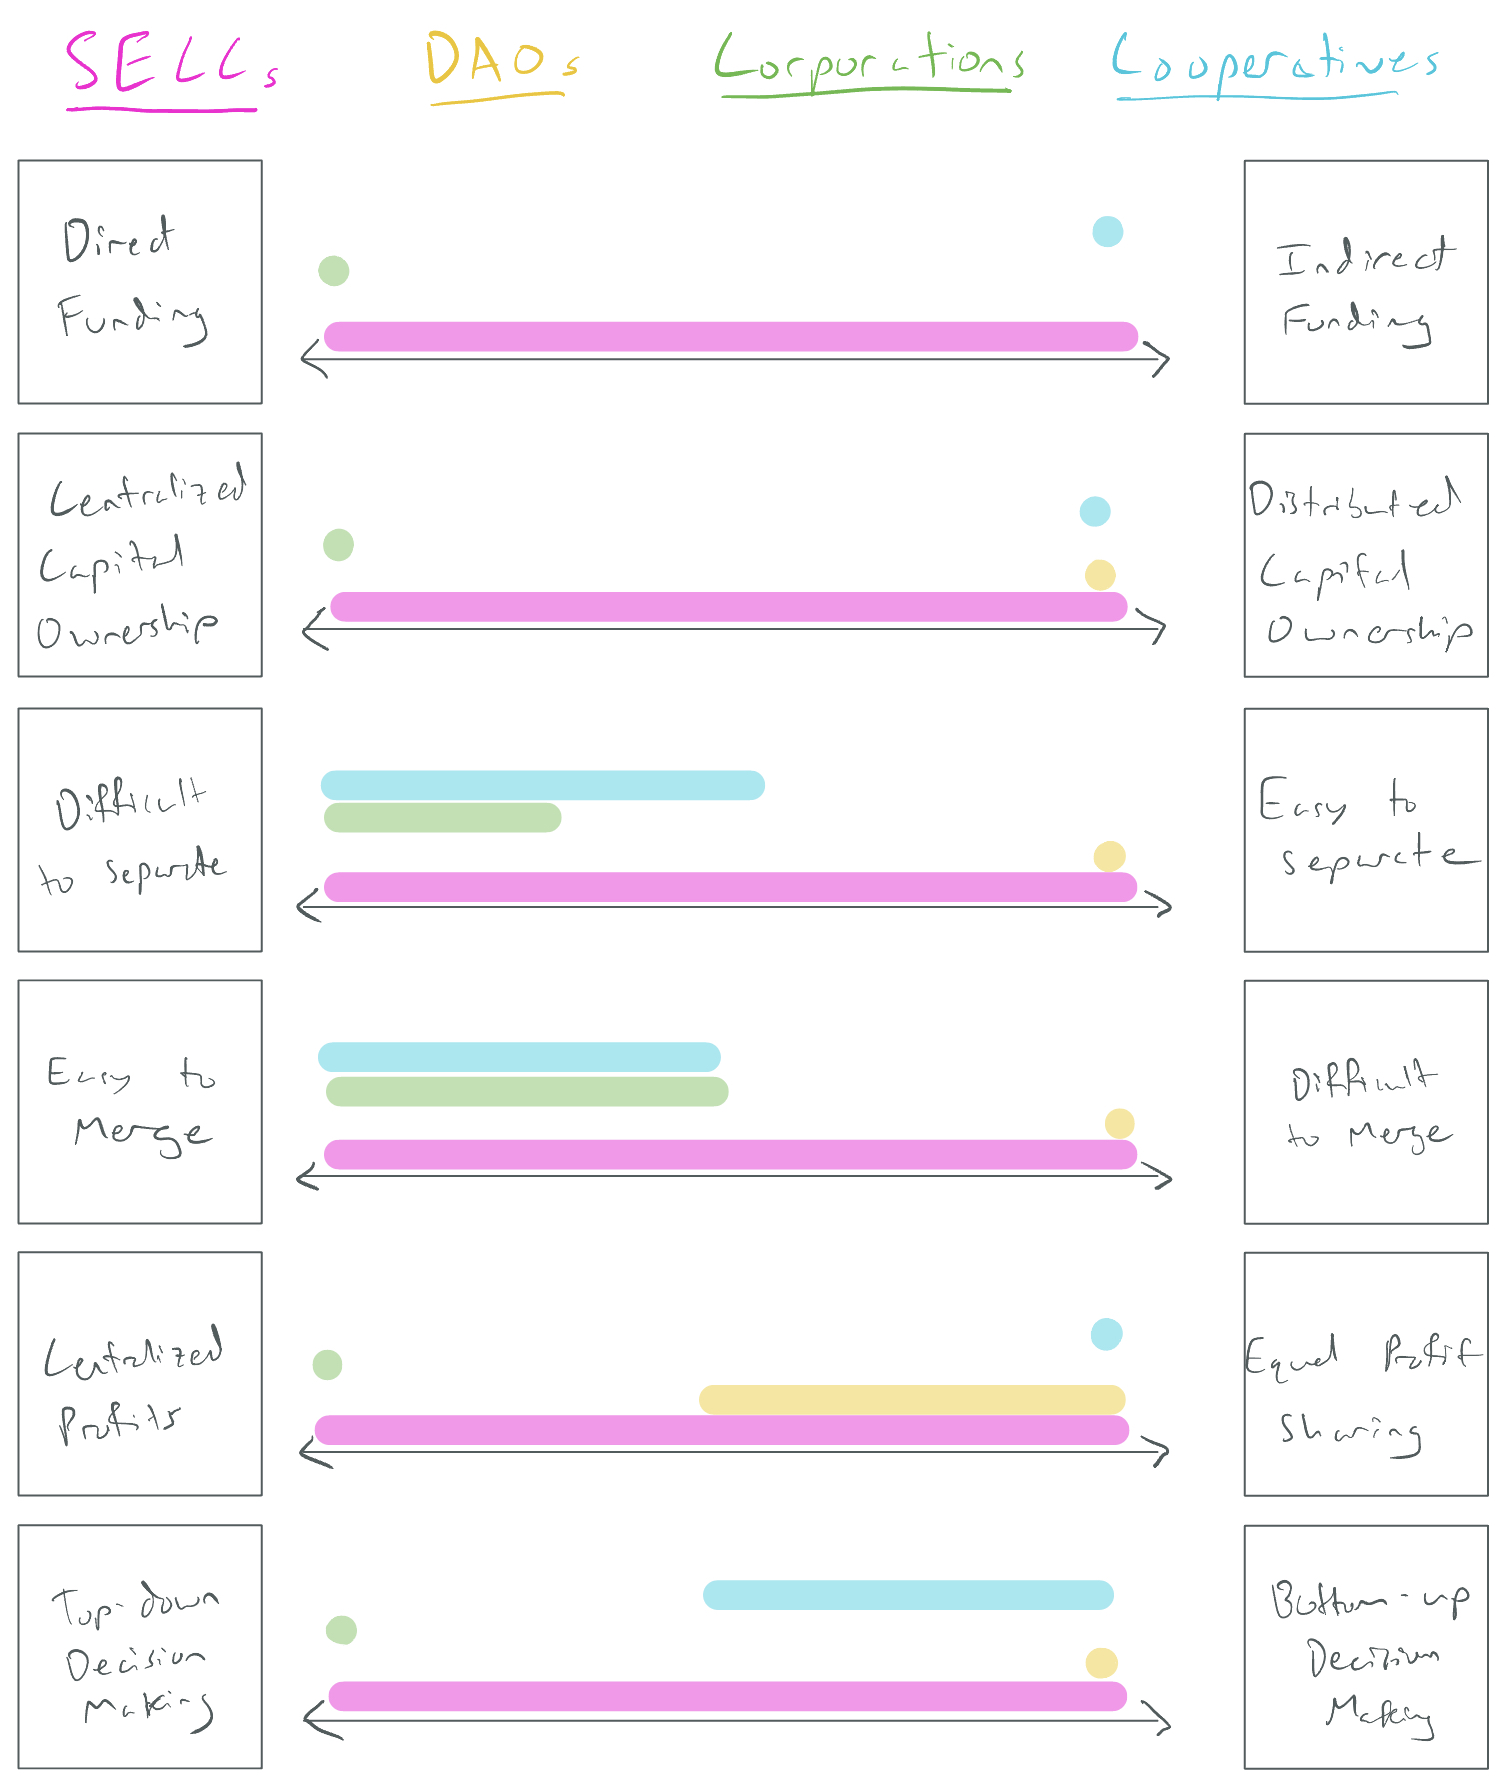 SELCs DAOs Corporations Cooperatives
Direct
Funding
Indirect
Funding
Centralized
Capital
Ownership
Distributed
Capital
Ownership
Difficult
to separate
Easy to
separate
Easy to
Merge
Difficult
to Merge
Centralized
Profits
Equal Profit
Sharing
Top-down
Decision
Making
Bottom-up
Decision
Making